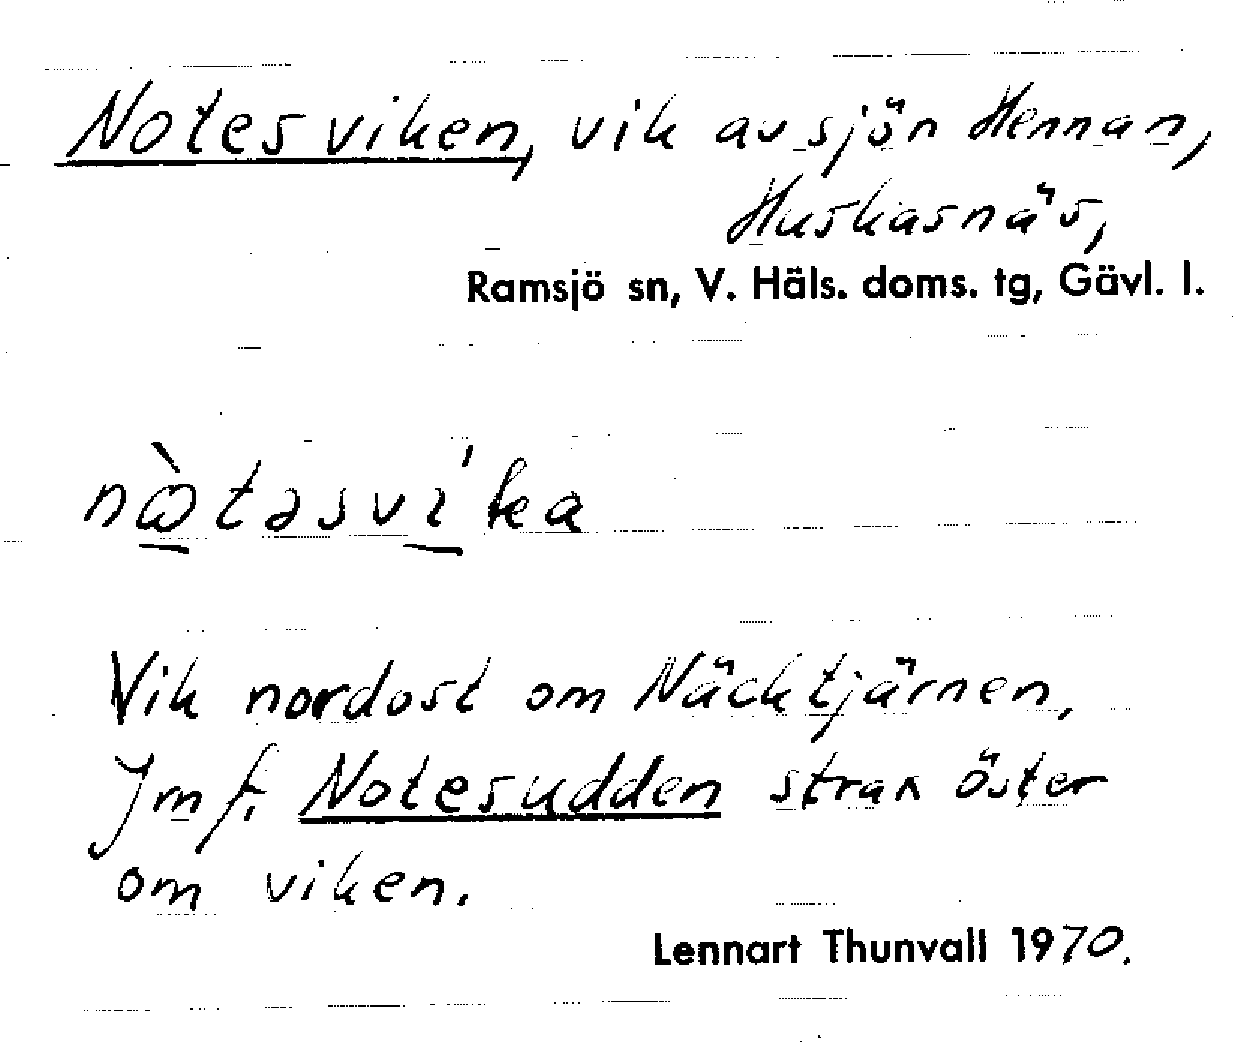 Notesviken, vik av sjön Hennan,
Huskasnäs,
Ramsjö sn, V. Häls. doms. tg, Gävl. l.
nὼtəsvı̱́ka
Vik nordost om Näcktjärnen,
Jmf. Notesudden strax öster
om viken.
Lennart Thunvall 1970.